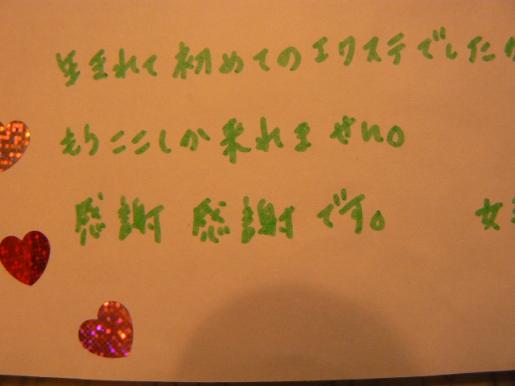 生まれて初めてのエクステでした
もうここしか来れません。
感謝 感謝です。 女